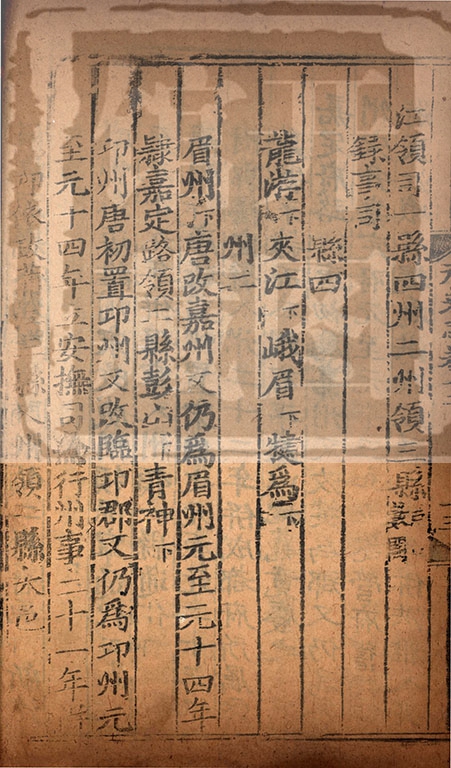 江領司一縣四州二州領三縣
錄事司
縣四
龍游下夾江下峨眉下犍為下
州二
眉州下唐改嘉州又仍為眉州元至元十四年
隸嘉定路領二縣彭山下青神下
邛州唐初置邛州又改臨邛郡又仍為邛州元
至元十四年立安撫司行州事二十一年
州領二縣大邑